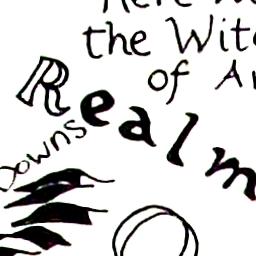 the Wit
of A
Realm
Downs